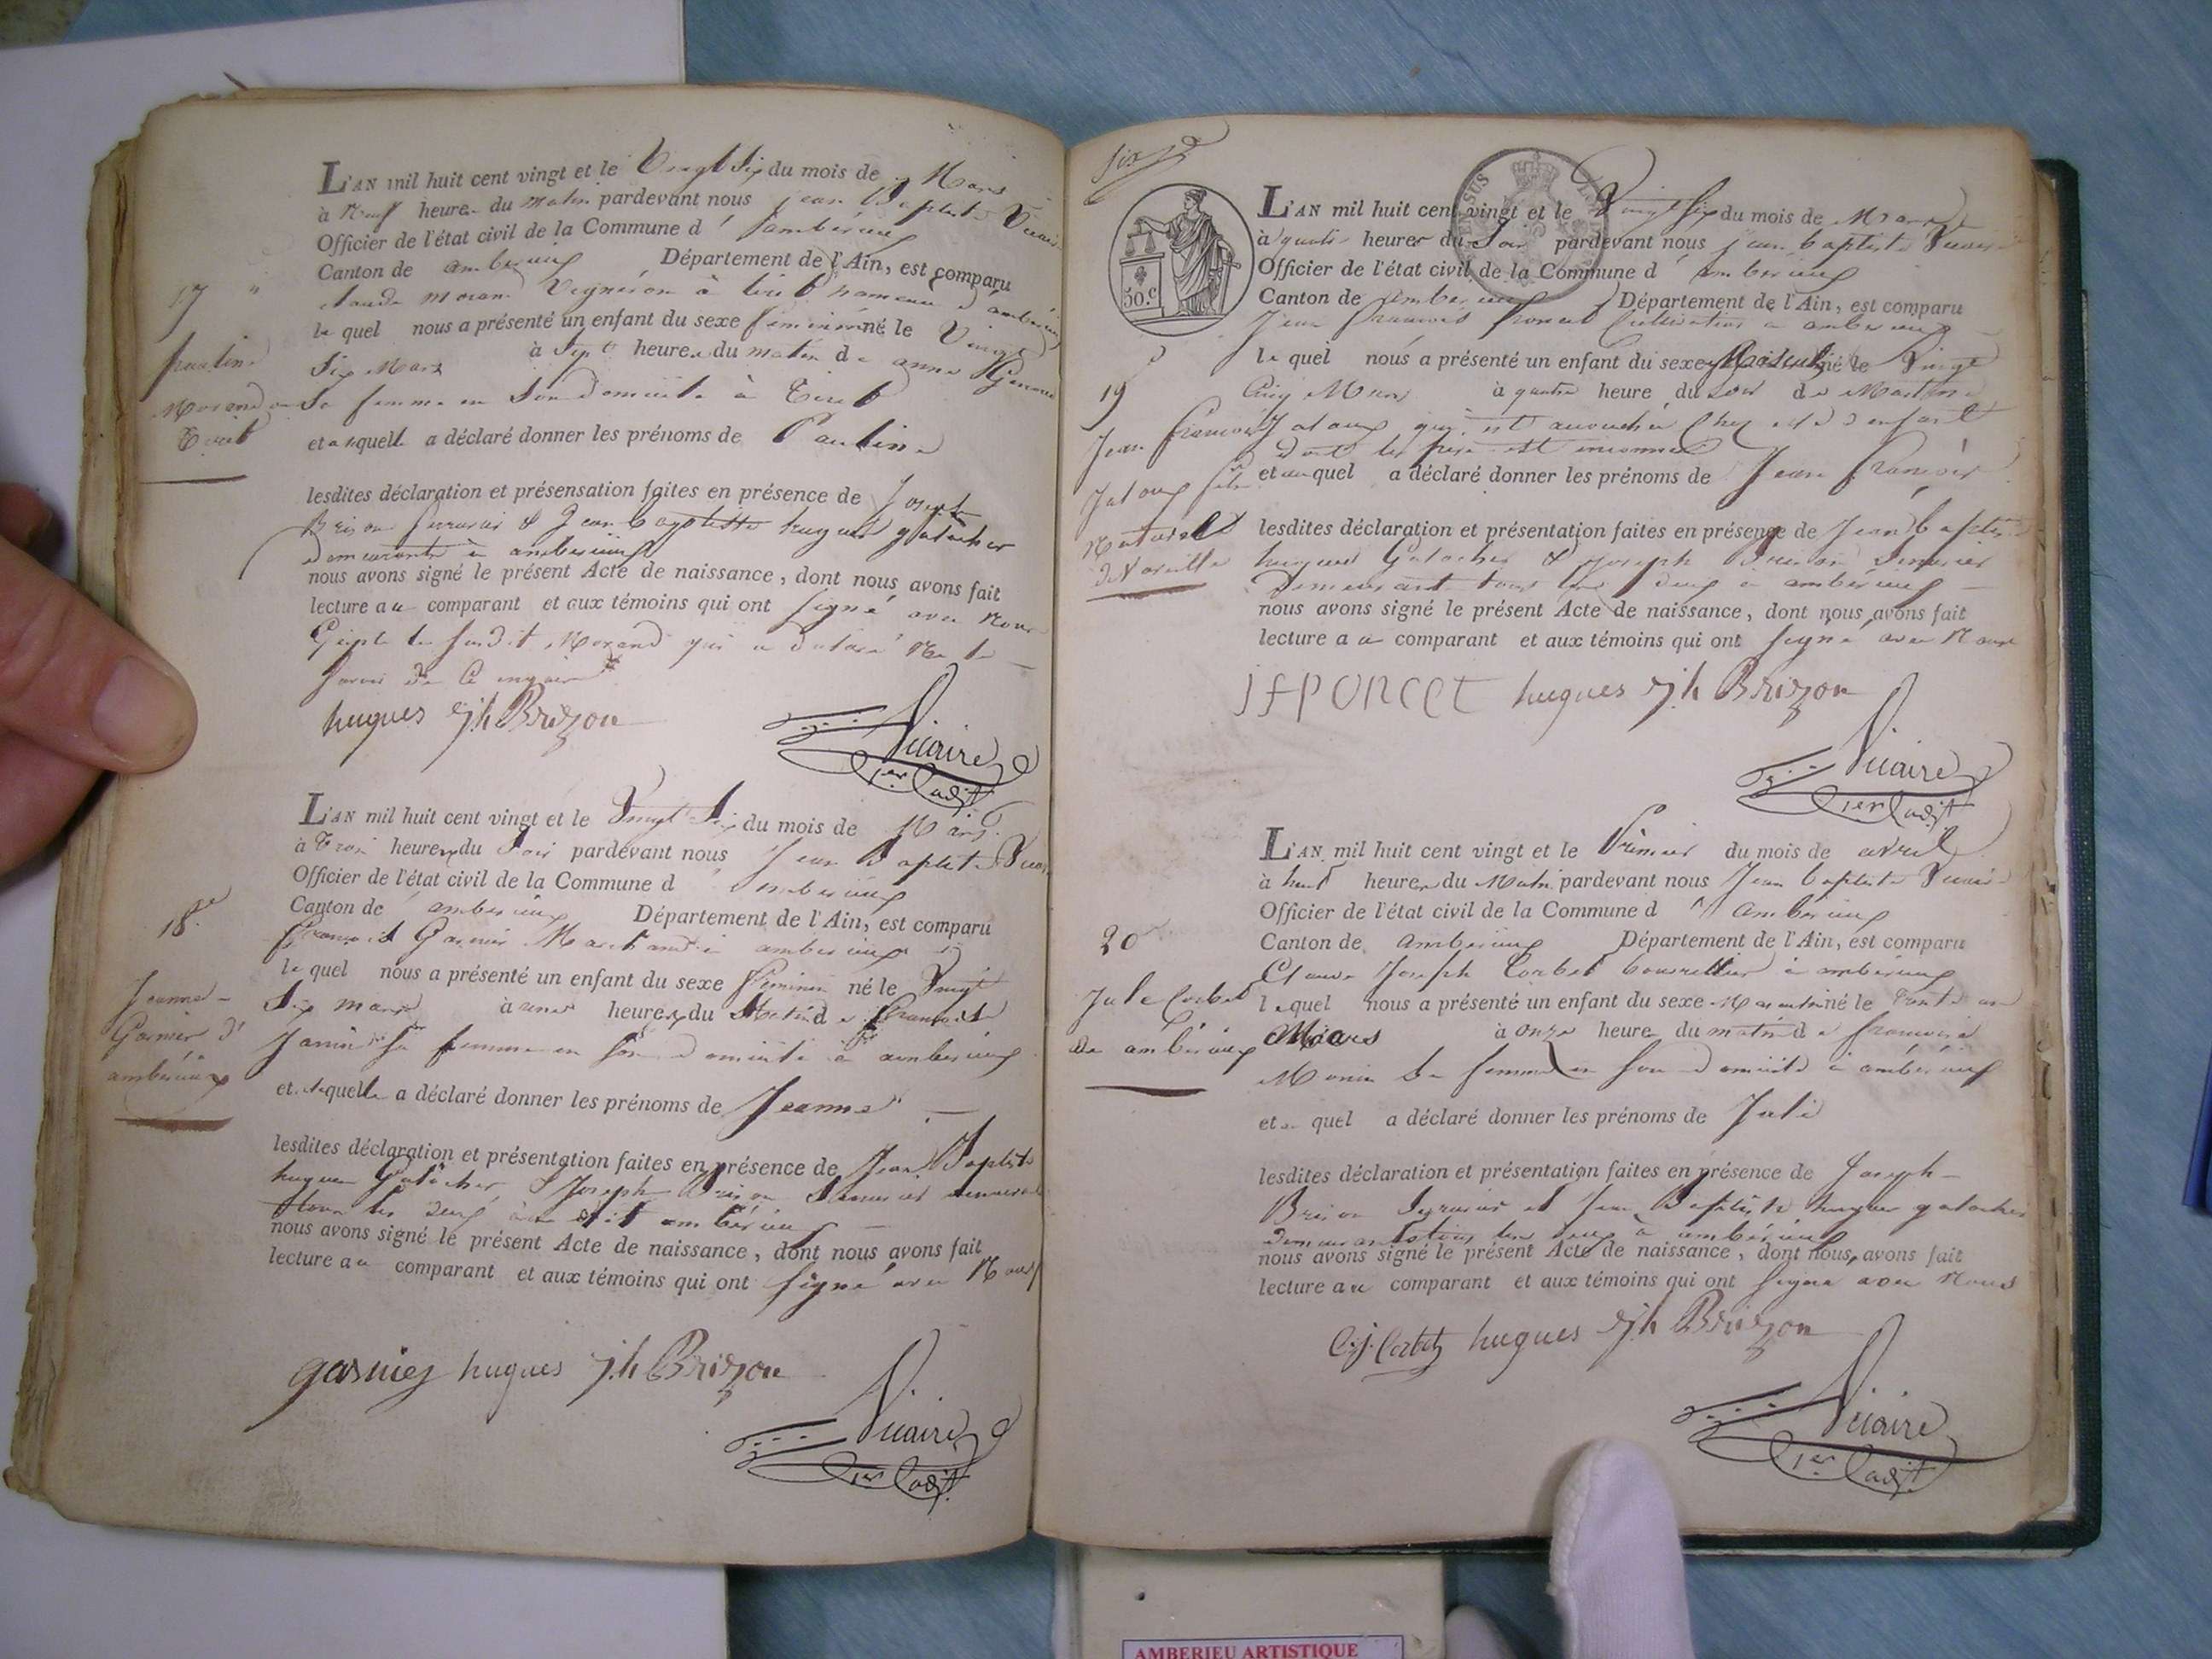 L'AN mil huit cent vingt et le Vingt Six du mois de Mars
à neuf heures du matin pardevant nous jean Baptiste Vicaire
Officier de l'état civil de la Commune d' ambérieux
Canton de ambérieux Département de l'Ain, est comparu
claude morand Vigneron à tiret hameau d'ambérieux
le quel nous a présenté un enfant du sexe féminin né le Vingt
Six Mars à Sept heures du matin de anne
Sa femme en Son domicile à Tiret
et a quell a déclaré donner les prénoms de Pauline
lesdites déclaration et présensation faites en présence de Joseph
Brison & Jean baptiste hugues
demeurants à ambérieux
nous avons signé le présent Acte de naissance, dont nous avons fait
lecture au comparant et aux témoins qui ont Signé avec nous
le Susdit Morand qui a déclaré ne le
Savoir de ce enquis
hugues jh Brizon
Vicaire
1er adjt
17
Pauline
Morand
Tiret
L'AN mil huit cent vingt et le Vingt Six du mois de Mars
à Trois heures du Soir pardevant nous Jean Baptiste Vicaire
Officier de l'état civil de la Commune d' ambérieux
Canton de ambérieux Département de l'Ain, est comparu
françois Garnier Marchand à ambérieux
le quel nous a présenté un enfant du sexe féminin né le Vingt
Six mars à une heures du Matin de françoise
Janin Sa femme en Son domicile à ambérieux
et. aquelle a déclaré donner les prénoms de Jeanne
lesdites déclaration et présentation faites en présence de Jean Baptiste
hugues & Joseph Brison
tous les deux ambérieux
nous avons signé le présent Acte de naissance, dont nous avons fait
lecture au comparant et aux témoins qui ont Signé avec Nous
garnier hugues jh Brizon
Vicaire
1er adjt
18
Jeanne
Garnier d'
ambérieux
Six
50.C
L'AN mil huit cent vingt et le Vingt Six du mois de Mars
à quatre heures du Soir pardevant nous jean baptiste Vicaire
Officier de l'état civil de la Commune d' ambérieux
Canton de ambérieux Département de l'Ain, est comparu
Jean françois Poncet Cultivateur à ambérieux
le quel nous a présenté un enfant du sexe Masculin né le Vingt
Cinq Mars à quatre heure du soir de
qui est accouchée Chez lui d'enfant
dont le père est inconnu
et auquel a déclaré donner les prénoms de Jean françois
lesdites déclaration et présentation faites en présence de Jean baptiste
hugues & joseph Brison
demeurant tous les deux à ambérieux
nous avons signé le présent Acte de naissance, dont nous avons fait
lecture au comparant et aux témoins qui ont Signé avec Nous
jfPONCET hugues jh Brizon
Vicaire
1er adjt
19
Jean françois
Naturel
L'AN mil huit cent vingt et le Premier du mois de avril
à huit heures du Matin pardevant nous Jean baptiste Vicaire
Officier de l'état civil de la Commune d' Ambérieux
Canton de ambérieux Département de l'Ain, est comparu
Claude Joseph Corbet bourrellier à ambérieux
lequel nous a présenté un enfant du sexe Masculin né le Trente un
Mars à onze heure du matin de françoise
Monin Sa femme en Son domicile à ambérieux
et quel a déclaré donner les prénoms de Jule
lesdites déclaration et présentation faites en présence de Joseph
Brison et Jean Baptiste hugues
demeurants tous les deux à ambérieux
nous avons signé le présent Acte de naissance, dont nous avons fait
lecture au comparant et aux témoins qui ont Signé avec Nous
C.j. Corbet hugues jh Brizon
Vicaire
1er adjt
20
Jule Corbet
de ambérieux
AMBERIEU ARTISTIQUE